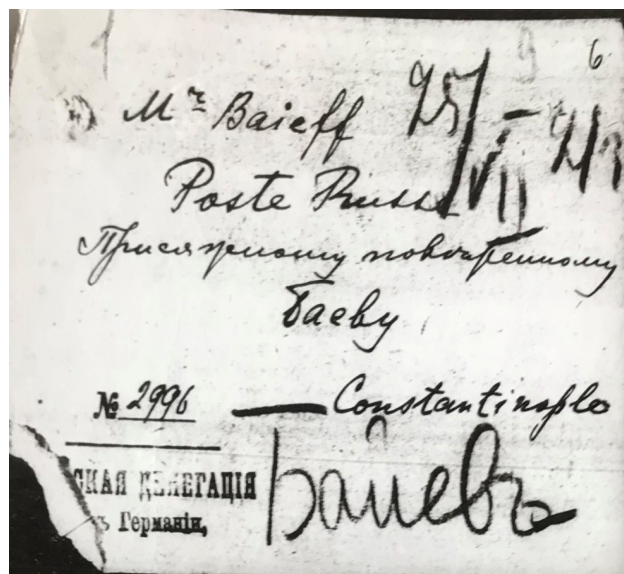 6
Mr Baieff 25/VII-21
Poste Russe
Присяжному повѣренному
Баеву
№ 2996 — Constantinople
СКАЯ ДЕЛЕГАЦІЯ
ъ Германіи,
Баиевъ